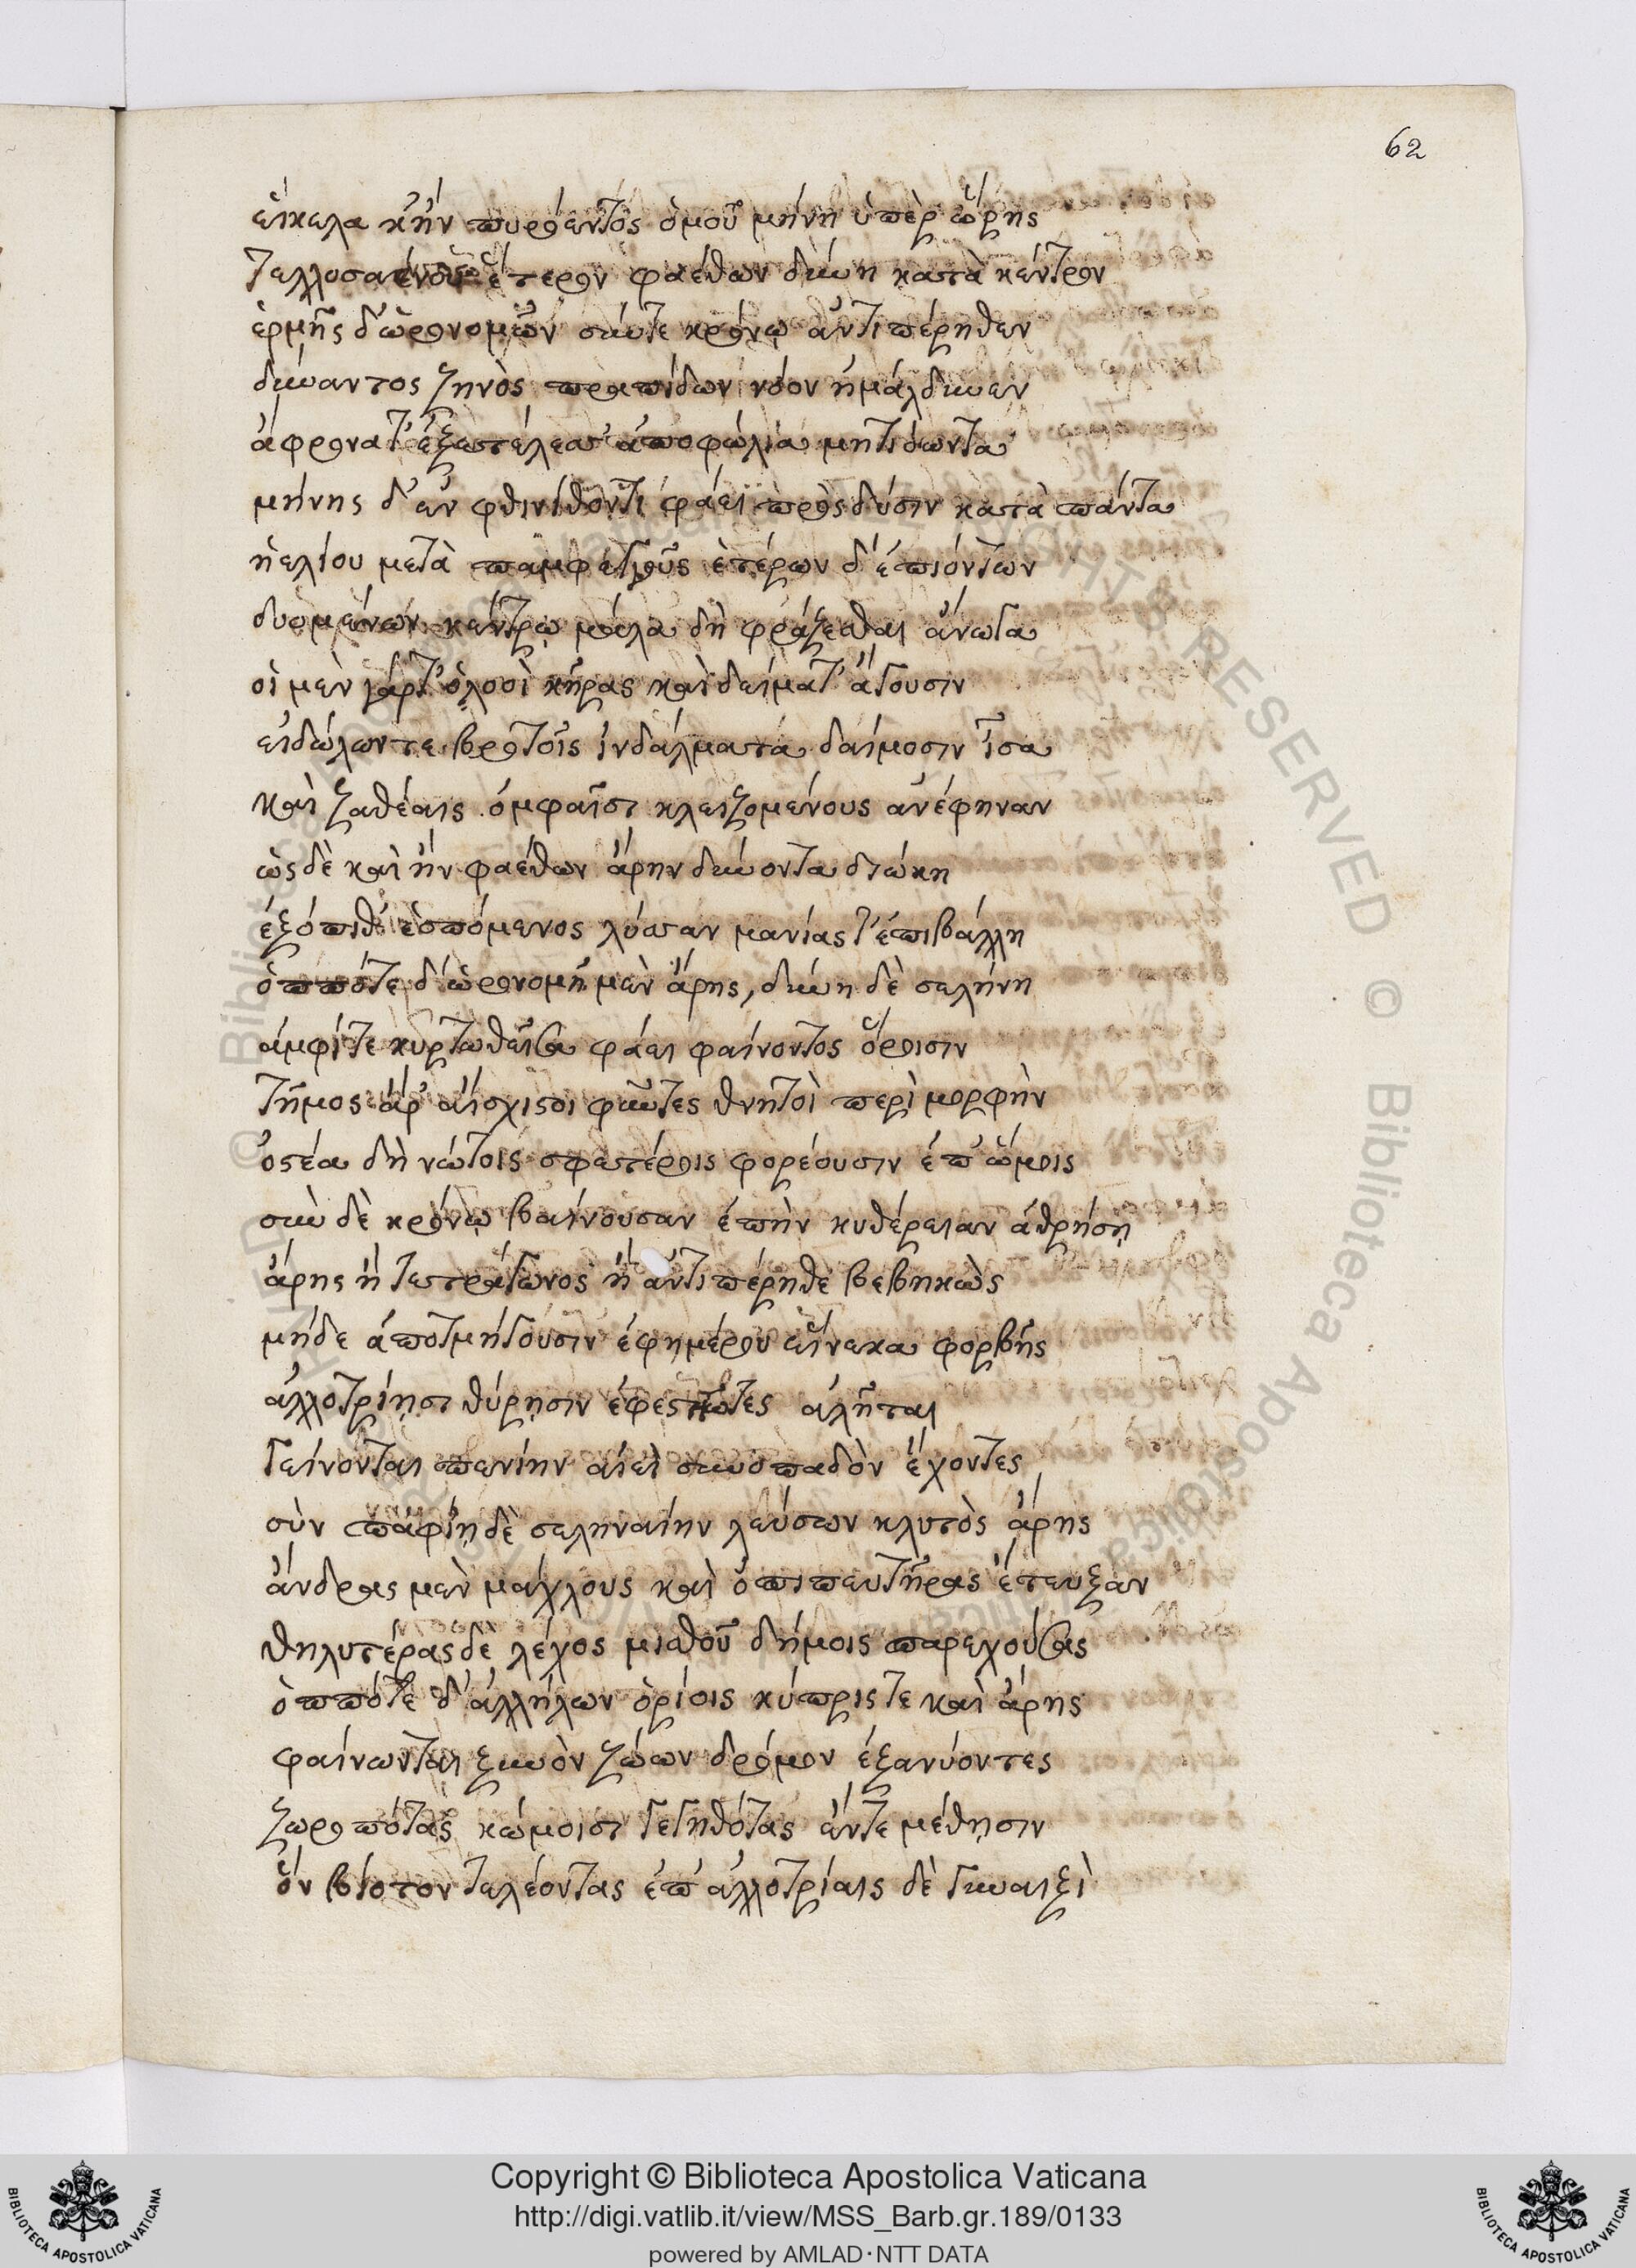 62
εἴκελα κἢν πυρόεντος ὁμοῦ μήνη ὑπὲρ ὥρης
ἕτερον φαέθων δύνη κατὰ κέντρον
ἑρμῆς δ' ὡρονομῶν σύντε κρόνῳ ἀντιπέρηθεν
δύναντος ζηνὸς πραπίδων νόον ἠμάλδυνεν
ἄφρονα τ' ἐξετέλεσ' ἀποφώλια μητιόωντα
μήνης δ' ἐν φθινύθοντι φάει πρὸς δύσιν κατὰ πάντα
ἠελίου μετὰ παμφεγγοῦς ἑτέρων δ' ἐπιόντων
δυομένων κέντρῳ μάλα δὴ φράζεσθαι ἄνωγα
οἱ μὲν γάρτ' ὀλοοὶ κῆρας καὶ δείματ' ἄγουσιν
εἰδώλωντε βροτοῖς ἰνδάλματα δαίμοσιν ἶσα
καὶ ζαθέαις ὀμφαῖσι κλειζομένους ἀνέφηναν
ὡς δὲ καὶ ἢν φαέθων ἄρην δύνοντα διώκη
ἐξόπιθ' ἑσπόμενος λύσσαν μανίας τ' ἐπιβάλλη
ὁππότε δ' ὡρονομῆ μὲν ἄρης, δύνη δὲ σελήνη
ἀμφίτε κυρτωθεῖσα φάει φαίνοντος ὅροισιν
τῆμος ἄρ' αἴσχιστοι φῶτες θνητοὶ περὶ μορφὴν
ὀστέα δὴ νώτοις σφετέροις φορέουσιν ἐπ' ὤμοις
σὺν δὲ κρόνῳ βαίνουσαν ἐπὴν κυθέρειαν ἀθρήσῃ
ἄρης ἢ τετράγωνος ἢ ἀντιπέρηθε βεβηκὼς
μήδε ἀποτμήγουσιν ἐφημέρου εἵνεκα φορβῆς
ἀλλοτρίῃσι θύρῃσιν ἐφεστῶτες ἀλῆται
γείνονται πενίην αἰεὶ συνοπαδὸν ἔχοντες
σὺν παφίῃ δὲ σεληναίην λεύσσων κλυτὸς ἄρης
ἄνδρας μὲν μάχλους καὶ ὀπιπευτῆρας ἔτευξαν
θηλυτέρας δὲ λέχος μισθοῦ δήμοις παρεχούσας
ὁππότε δ' ἀλλήλων ὁρίοις κύπρις τε καὶ ἄρης
φαίνωνται ξυνὸν ζώων δρόμον ἐξανύοντες
ζωροπότας κώμοισι γεγηθότας ἔντε μέθῃσιν
ὃν βίοτον τελέοντας ἐπ' ἀλλοτρίαις δὲ γυναιξὶ
Copyright © Biblioteca Apostolica Vaticana
http://digi.vatlib.it/view/MSS_Barb.gr.189/0133
powered by AMLAD·NTT DATA
BIBLIOTECA APOSTOLICA VATICANA
BIBLIOTECA APOSTOLICA VATICANA